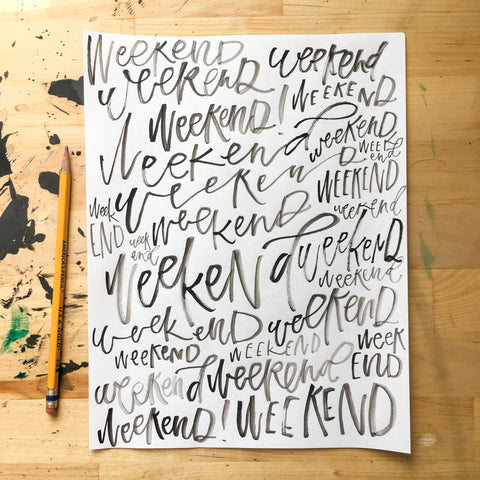 WEEKEND weekend
weekend WEEKEND
WEEKEND!
Weekend weekend
week
end
weekend WEEKEND
week
END
week
end
weekend weekend
WEEKEND weekend
weekend
weekend weekend
weekend WEEKEND
week
END
weekend weekend
Weekend! WEEKEND